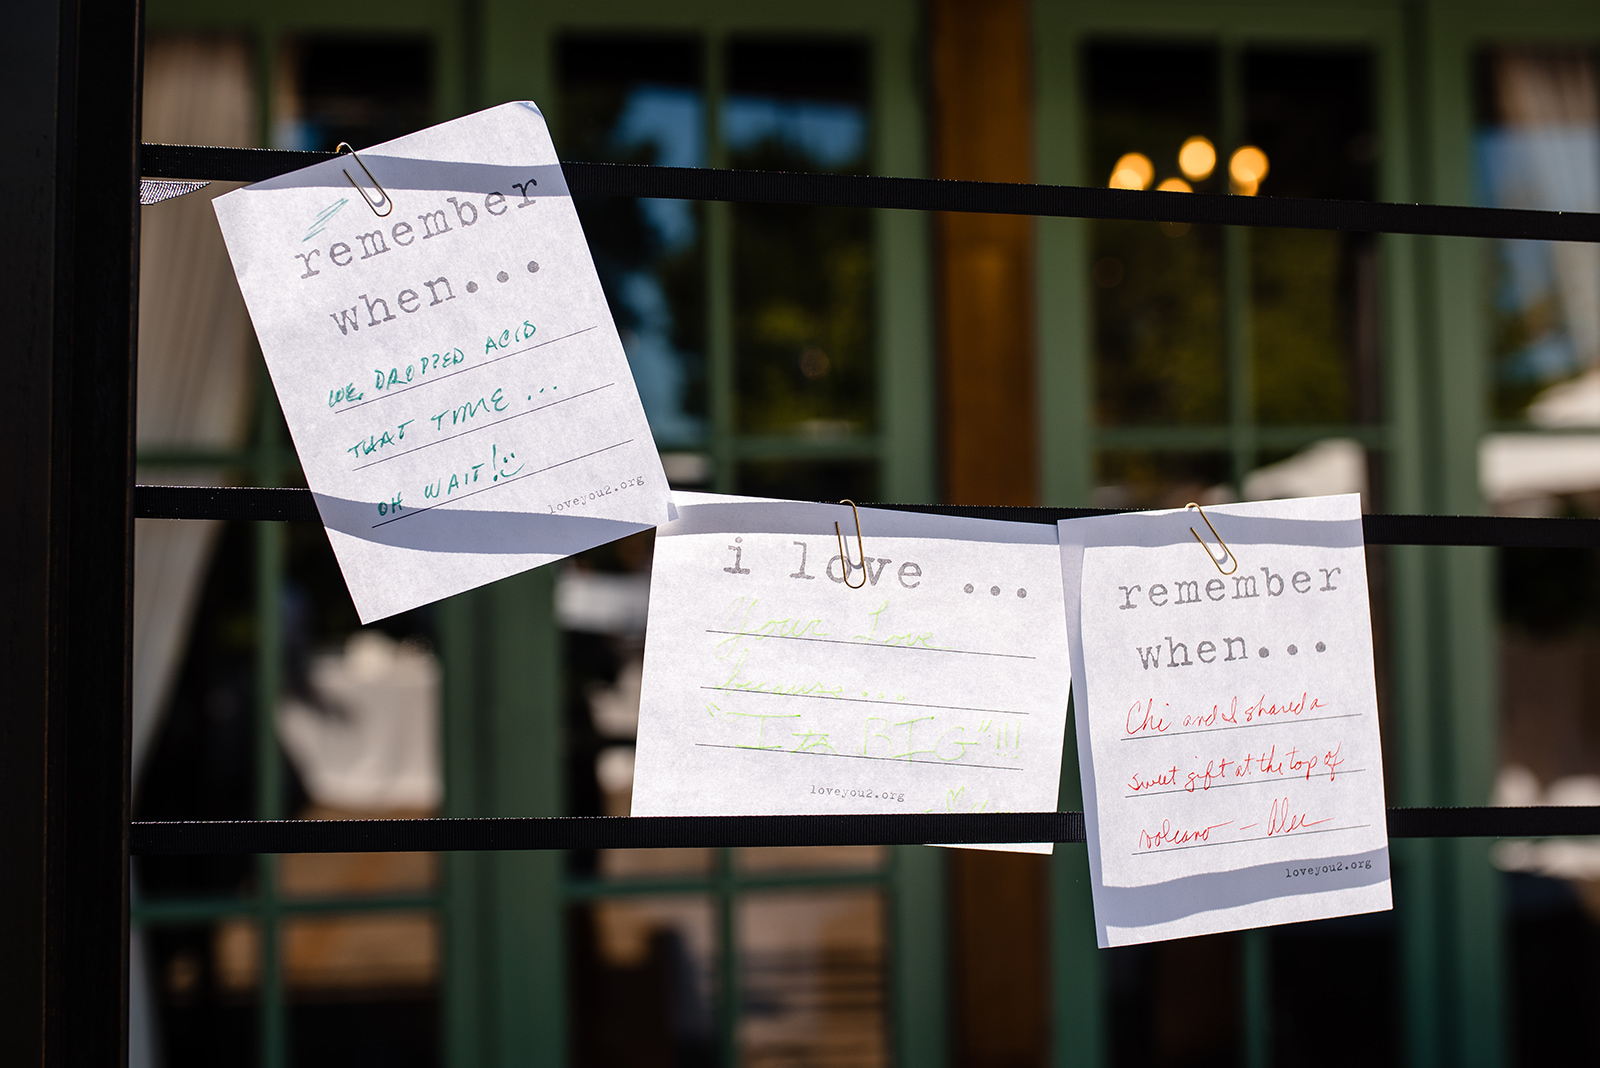 remember
when...
WE DROPPED ACID
THAT TIME ...
OH WAIT!
loveyou2.org
i love ...
Your Love
because...
"Its BIG"!!!
loveyou2.org
remember
when...
Chi and I shared a
sweet gift at the top of
volcano – Alec
loveyou2.org